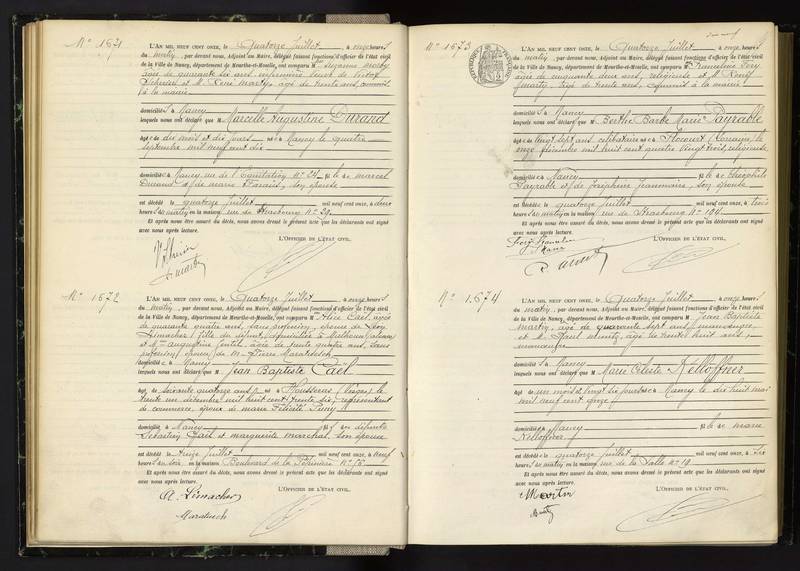 N° 1671
L'AN MIL NEUF CENT ONZE, le Quatorze Juillet, à onze heures
du matin, par devant nous, Adjoint au Maire, délégué faisant fonctions d'officier de l'état civil
de la Ville de Nancy, département de Meurthe-et-Moselle, ont comparu M Suzanne
âgée de quarante six ans, infirmière
et M. René Marty, âgé de trente ans, commis
à la mairie
domiciliés à Nancy
lesquels nous ont déclaré que M Marcelle Augustine Durand
âgée de dix mois et dix jours née à Nancy le quatre
septembre mil neuf cent dix
domiciliée à Nancy rue de N° 24 fille de Marcel
Durand et de Marie son épouse
est décédée le quatorze Juillet mil neuf cent onze, à deux
heures du matin en la maison rue de Strasbourg N° 29
Et après nous être assuré du décès, nous avons dressé le présent acte que les déclarants ont signé
avec nous après lecture.
L'OFFICIER DE L'ÉTAT CIVIL,
N° 1672
L'AN MIL NEUF CENT ONZE, le Quatorze Juillet, à onze heures
du matin, par devant nous, Adjoint au Maire, délégué faisant fonctions d'officier de l'état civil
de la Ville de Nancy, département de Meurthe-et-Moselle, ont comparu M Alice Caël, âgée
de quarante quatre ans, sans profession, épouse de Léon
Limacher, fille du défunt, domiciliée à
et M Augustine âgée de trente quatre ans, sans
profession, épouse de M. Pierre
domiciliée à Nancy
lesquels nous ont déclaré que M Jean Baptiste Caël
âgé de soixante quatorze ans né à Housseras (Vosges) le
trente un décembre mil huit cent trente six, représentant
de commerce, époux de Marie Félicité
domicilié à Nancy fils des défunts
Sébastien Caël et Marguerite Marchal, son épouse
est décédé le treize Juillet mil neuf cent onze, à neuf
heures du soir en la maison Boulevard de la Pépinière N°
Et après nous être assuré du décès, nous avons dressé le présent acte que les déclarants ont signé
avec nous après lecture.
L'OFFICIER DE L'ÉTAT CIVIL,
A. Limacher
N° 1673
L'AN MIL NEUF CENT ONZE, le Quatorze Juillet, à onze heures
du matin, par devant nous, Adjoint au Maire, délégué faisant fonctions d'officier de l'état civil
de la Ville de Nancy, département de Meurthe-et-Moselle, ont comparu M Franceline
âgée de cinquante deux ans, religieuse et M. René
Marty, âgé de trente ans, commis à la mairie
domiciliés à Nancy
lesquels nous ont déclaré que M Berthe Barbe Marie Payrable
âgée de vingt sept ans célibataire née à Flocourt (Lorraine) le
onze décembre mil huit cent quatre vingt trois, religieuse
domiciliée à Nancy fille de Théophile
Payrable et de Joséphine Jeanmaire, son épouse
est décédée le quatorze Juillet mil neuf cent onze, à trois
heures du matin en la maison rue de Strasbourg N° 104
Et après nous être assuré du décès, nous avons dressé le présent acte que les déclarants ont signé
avec nous après lecture.
L'OFFICIER DE L'ÉTAT CIVIL,
N° 1674
L'AN MIL NEUF CENT ONZE, le Quatorze Juillet, à onze heures
du matin, par devant nous, Adjoint au Maire, délégué faisant fonctions d'officier de l'état civil
de la Ville de Nancy, département de Meurthe-et-Moselle, ont comparu M Jean Baptiste
Martin, âgé de quarante sept ans, manœuvre
et M. Paul âgé de trente huit ans,
manœuvre
domiciliés à Nancy
lesquels nous ont déclaré que M Marie Céleste Nelloffner
âgée de un mois et vingt six jours née à Nancy le dix huit mai
mil neuf cent onze
domiciliée à Nancy fille de Marie
Nelloffner
est décédée le quatorze Juillet mil neuf cent onze, à
heures du matin en la maison rue de la Salle N° 19
Et après nous être assuré du décès, nous avons dressé le présent acte que les déclarants ont signé
avec nous après lecture.
L'OFFICIER DE L'ÉTAT CIVIL,
Martin